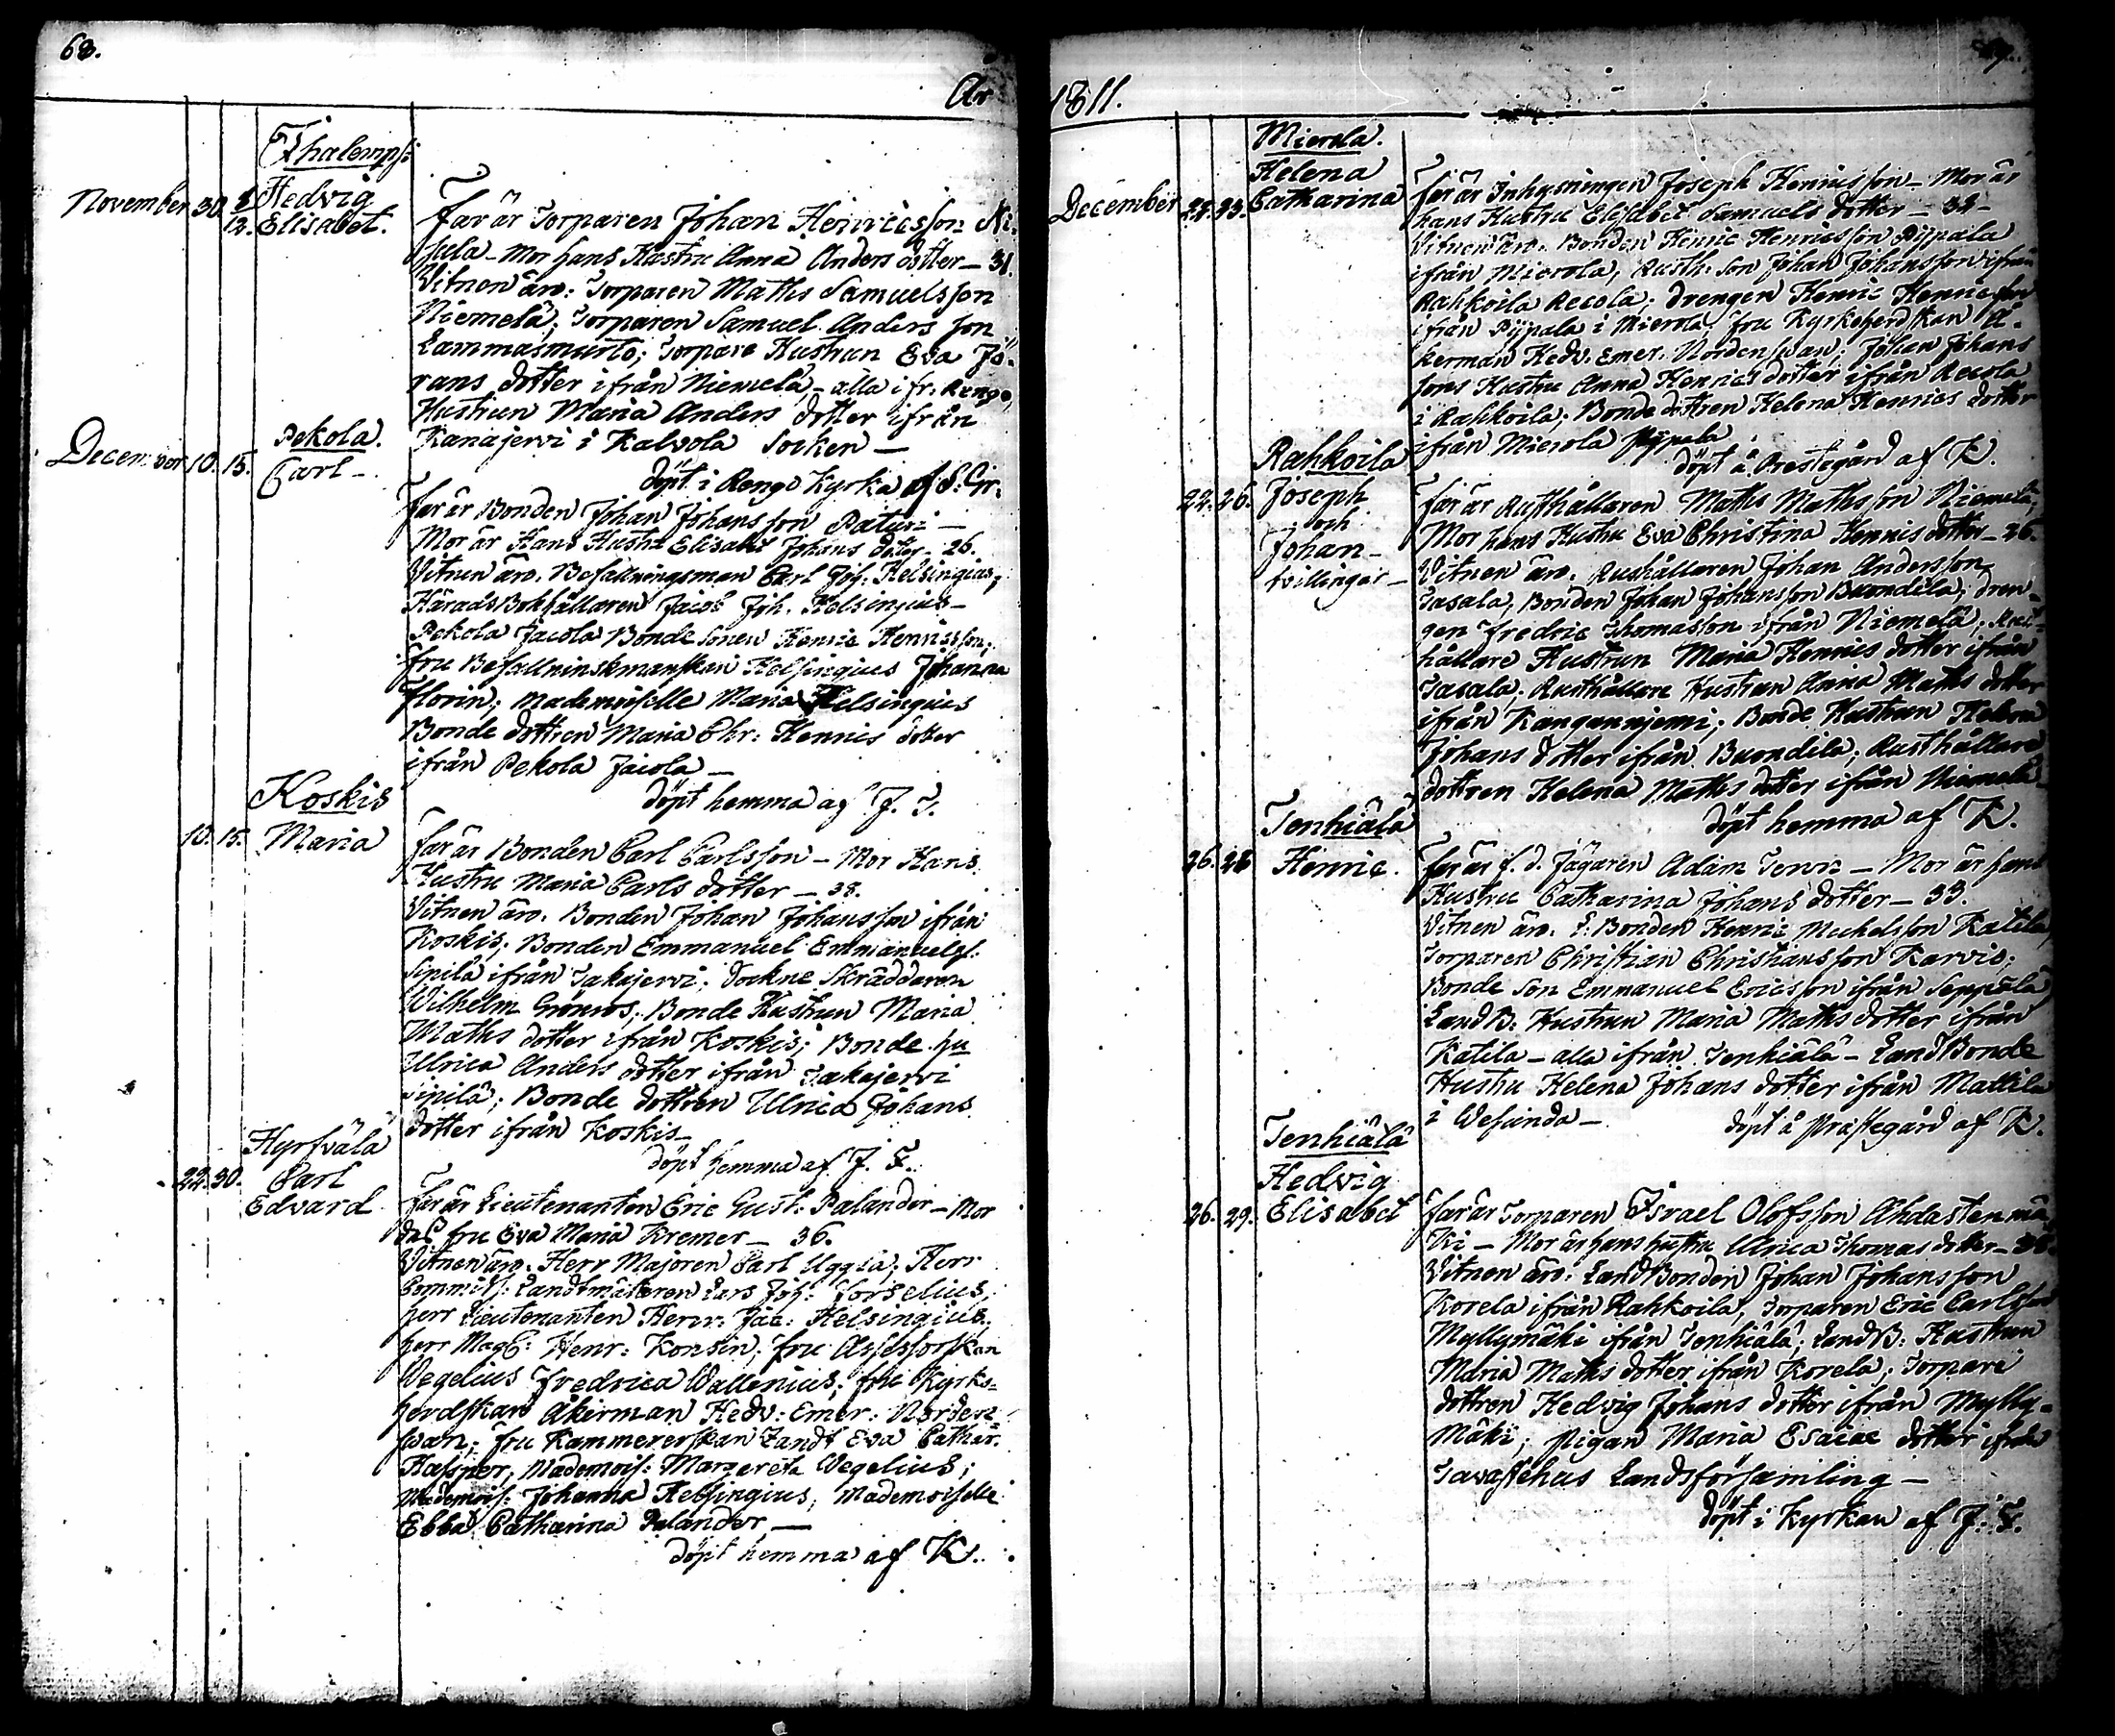 68.
År
Thalemps:
November 30. 1/12. Hedvig
Elisabet.
Far är Torparen Johan Henricsson
hula - Mor hans Hustru Anna Anders dotter - 31.
Vitnen äro: Torparen Maths Samuelsson
Niemelä; Torparen Samuel Anders son
Lammasmusto; Torpare Hustrun Eva Jö-
rans dotter ifrån Niemelä, - alla ifr. Rengo,
Hustrun Maria Anders dotter ifrån
Kanajervi i Kalvola Socken -
döpt i Rengo Kyrka af S. Gr.
Pekola.
December 10. 15. Carl -
Far är Bonden Johan Johansson Paturi -
Mor är Hans Hustru Elisabet Johans dotter - 26.
Vitnen äro. Befallningsman Carl Joh: Helsingius,
Härads Bokhållaren Jacob Joh. Helsingius -
Pekola Jacola Bonde Sonen Henric Henricsson;
fru Befallninskmanskan Helsingius Johanna
Florin; Mademoiselle Maria Helsingius
Bonde dottren Maria Chr: Henrics dotter
ifrån Pekola Jacola -
döpt hemma af J. T.
Koskis
10. 15. Maria
Far är Bonden Carl Carlsson - Mor Hans
Hustru Maria Carls dotter - 38.
Vitnen äro. Bonden Johan Johansson ifrån
Koskis; Bonden Emmanuel Emmanuelss.
Sipilä ifrån Takajervi; Sockne Skräddaren
Wilhelm Grönros; Bonde Hustrun Maria
Maths dotter ifrån Koskis; Bonde hu
Ulrica Anders dotter ifrån Takajervi
Sipilä; Bonde dottren Ulrica Johans
dotter ifrån Koskis -
döpt hemma af J. T.
Hyrfvälä
22. 30. Carl
Edvard
Far är Lieutenanten Eric Gust: Palander - Mor
dess fru Eva Maria Kremer - 36.
Vitnen äro. Herr Majoren Carl Uggla; Herr
Commiss: Landtmätaren Lars Joh: Forselius;
herr Lieutenanten Herr. Jac: Helsingius;
herr Mag: Henr: Konsin; fru Assessorskan
Wegelius Fredrica Wallenius; fru Kyrko-
herdskan Åkerman Hedv: Emer: Norden-
swan; fru Kammererskan Landt Eva Cathar.
Hasper, Mademois: Margareta Wegelius;
Mademois: Johanna Helsingius; Mademoiselle
Ebba Catharina Palander, -
döpt hemma af K.
1811.
Mierola.
Helena
December 22. 23. Catharina
Far är Inhysningen Joseph Henricsson - Mor är
hans Hustru Elisabet Samuels dotter - 32 -
Vitnen äro. Bonden Henric Henricsson Pijpala
ifrån Mierola, Rusth: Son Johan Johansson ifrån
Rahkoila Recola; Drengen Henric Henricsson
ifrån Pijpala i Mierola; fru Kyrkoherdskan Å-
kerman Hedv. Emer. Nordenswan; Johan Johans
sons Hustru Anna Henrics dotter ifrån Recola
i Rahkoila; Bonde dottren Helena Henrics dotter
ifrån Mierola Pijpala
döpt å Prestegård af K.
Rahkoila
22. 26. Joseph
och
Johan -
tvillingar -
Far är Rusthållaren Maths Mathsson Niemelä,
Mor hans Hustru Eva Christina Henrics dotter - 26.
Vitnen äro. Rusthållaren Johan Andersson
Jasala, Bonden Johan Johansson Buondila; dren-
gen Fredric Thomasson ifrån Niemelä; Rust-
hållare Hustrun Maria Henrics dotter ifrån
Jasala; Rusthållare Hustrun Anna Maths dotter
ifrån Kanganniemi; Bonde Hustrun Helena
Johans dotter ifrån Buondila; Rusthållare
dottren Helena Maths dotter ifrån Niemelä
döpt hemma af K.
Tenhiälä
26. 28 Henric.
Far är f. d. Jägaren Adam Jervis - Mor är hans
Hustru Catharina Johans dotter - 33.
Vitnen äro. L. Bonden Henric Michelsson Katila,
Torparen Christian Christiansson Karvis;
Bonde Son Emmanuel Ericsson ifrån Seppälä
Land B. Hustrun Maria Maths dotter ifrån
Katila - alla ifrån Tenhiälä - Land Bonde
Hustru Helena Johans dotter ifrån Mattila
i Wesunda -
döpt å Prästegård af K.
Tenhiälä
Hedvig
26. 29. Elisabet
Far är Torparen Israel Olofsson Ahdastenmä
ki - Mor är hans hustru Ulrica Thomas dotter -
Vitnen äro: Land Bonden Johan Johansson
Korela ifrån Rahkoila, Torparen Eric Carlsson
Myllymäki ifrån Tenhiälä; Land B. Hustrun
Maria Maths dotter ifrån Korela; Torpare
dottren Hedvig Johans dotter ifrån Mylly-
mäki; Pigan Maria Esaiae dotter ifrån
Tavastehus Landsförsamling -
döpt i Kyrkan af J. T.